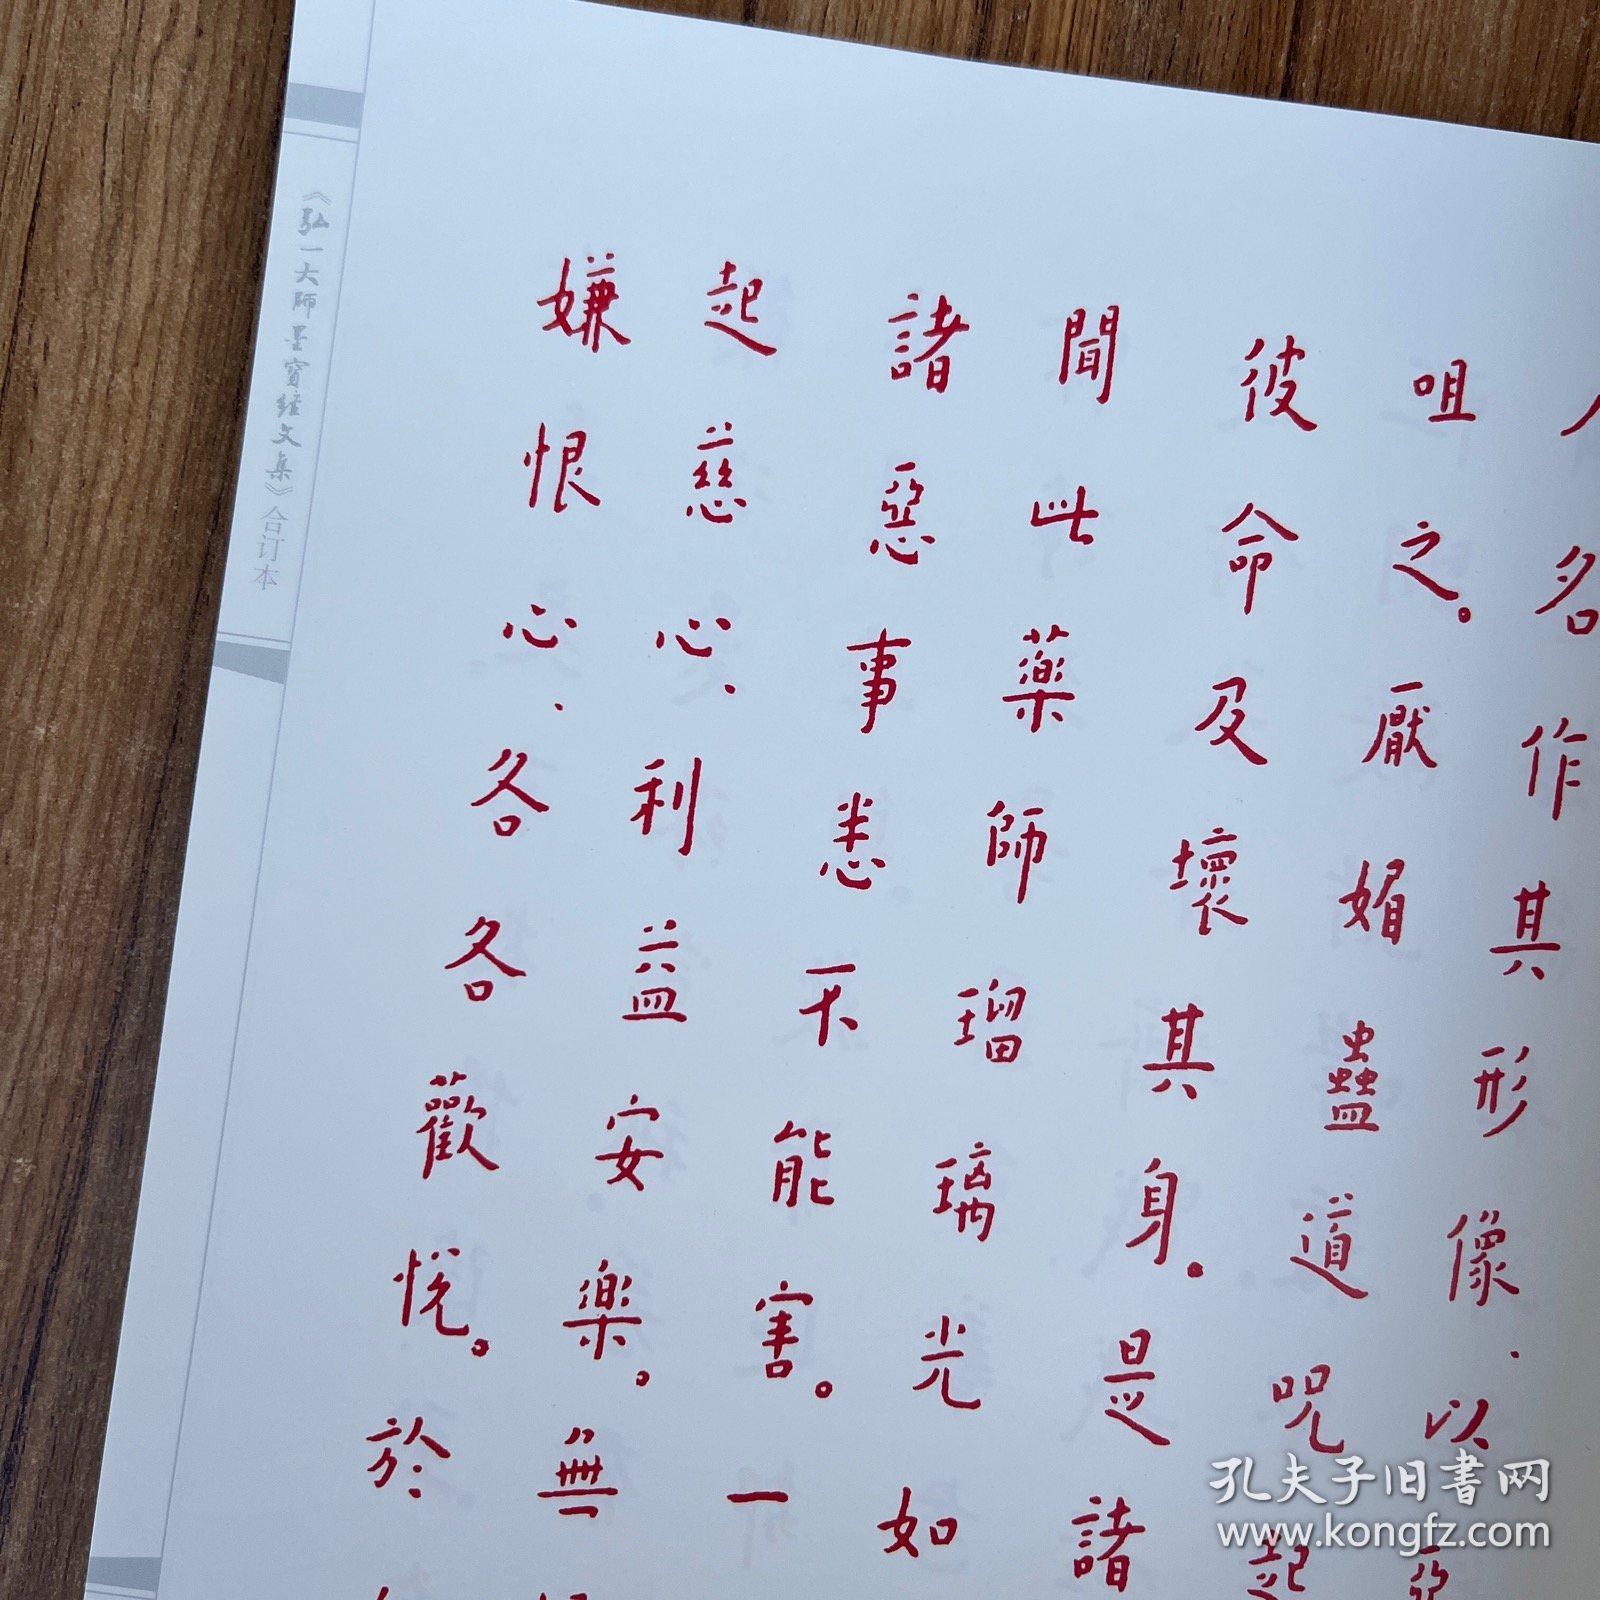 名作其形像、以
咀之。厭媚蠱道呪起
彼命及壞其身。是諸
聞此藥師瑠璃光如
諸惡事悉不能害。一
起慈心、利益安樂。無
嫌恨心、各各歡悅。於
《弘一大師墨寶經文集》合订本
孔夫子旧书网
www.kongfz.com